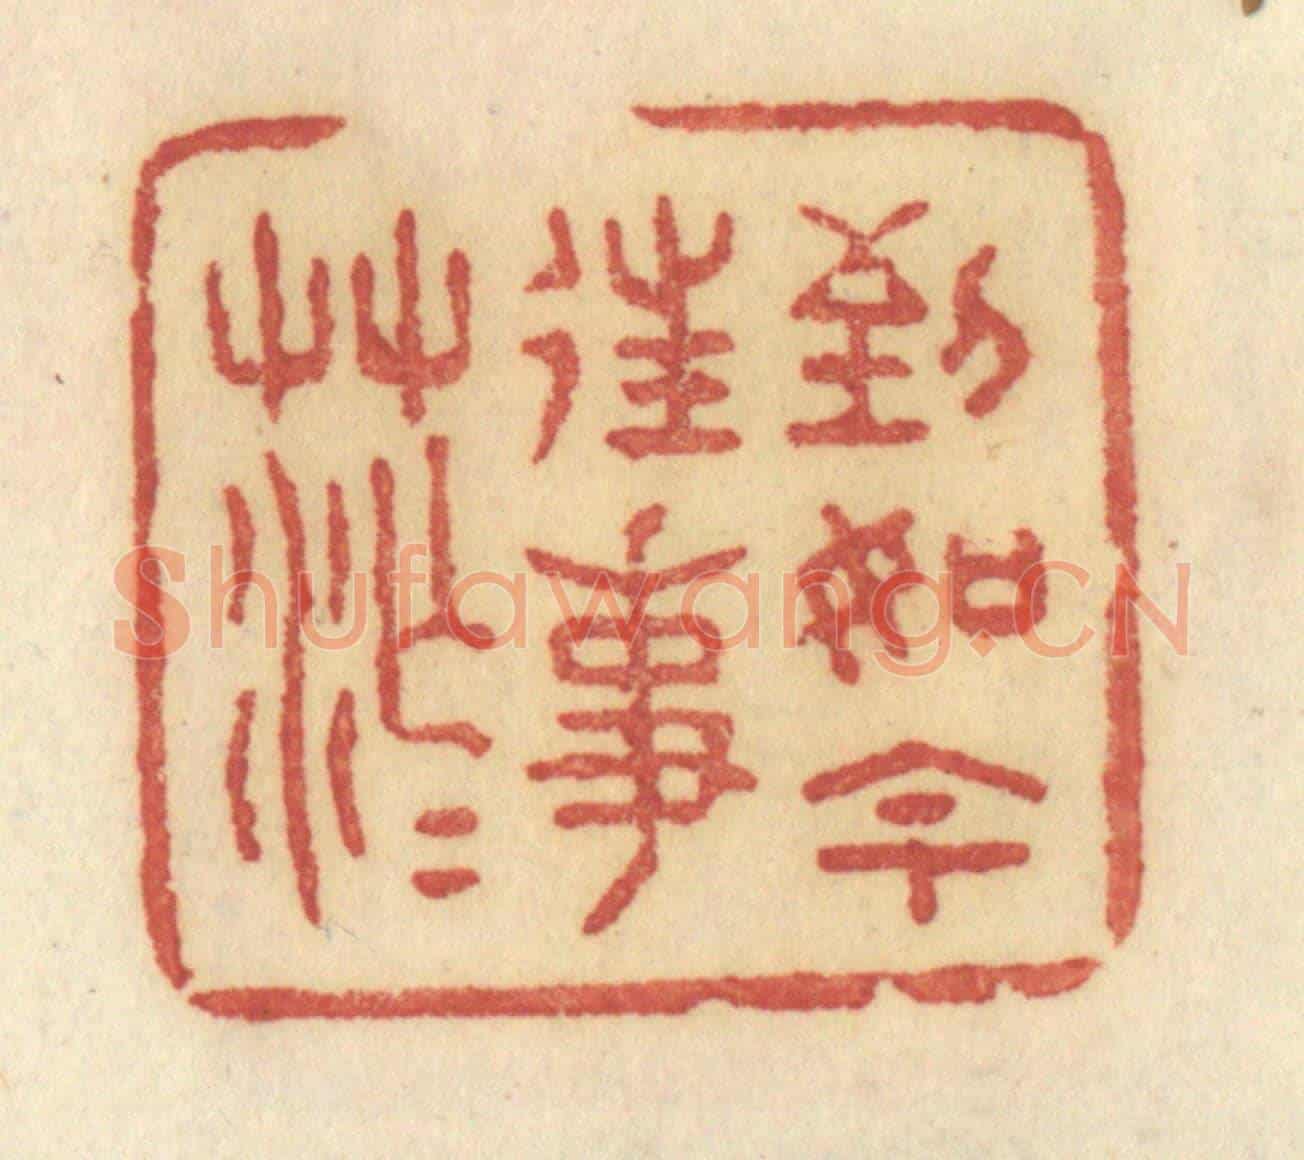 到如今
往事
茫〻
Shufawang.CN